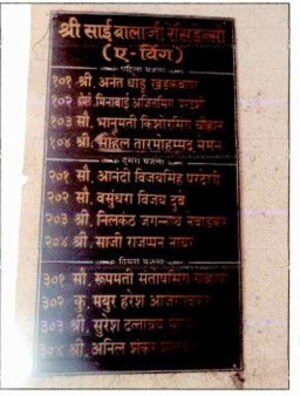 श्री साईबालाजी रेसिडेन्सी
(ए-विंग)
पहिला मजला
१०१ श्री. अनंत धोंडू
१०२ सौ. मिनाबाई अजितसिंग परदेशी
१०३ सौ. भानुमती किशोरसिंग चौहान
१०४ श्री. सोहिल तारमोहम्मद मेमन
दुसरा मजला
२०१ सौ. आनंदी विजयसिंह परदेशी
२०२ सौ. वसुंधरा विजय दुबे
२०३ श्री. निलकंठ जगन्नाथ
२०४ श्री. साजी राजप्पन नायर
तिसरा मजला
३०१ सौ. रुपमती प्रतापसिंग चौहान
३०२ कु. मयुर हरेश
३०३ श्री. सुरेश दत्तात्रय
३०४ श्री. अनिल शंकर